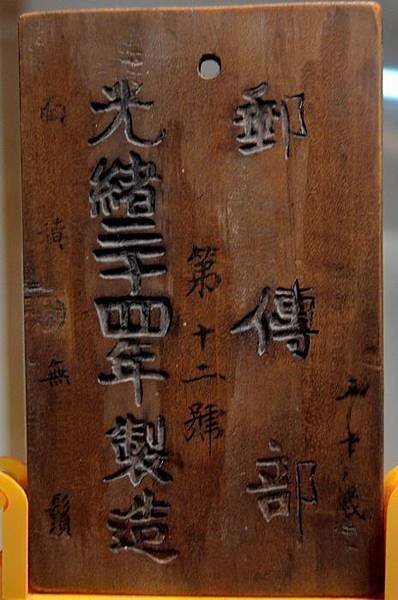 十歲
郵傳部
第十二號
光緒三十四年製造
面黃無鬚